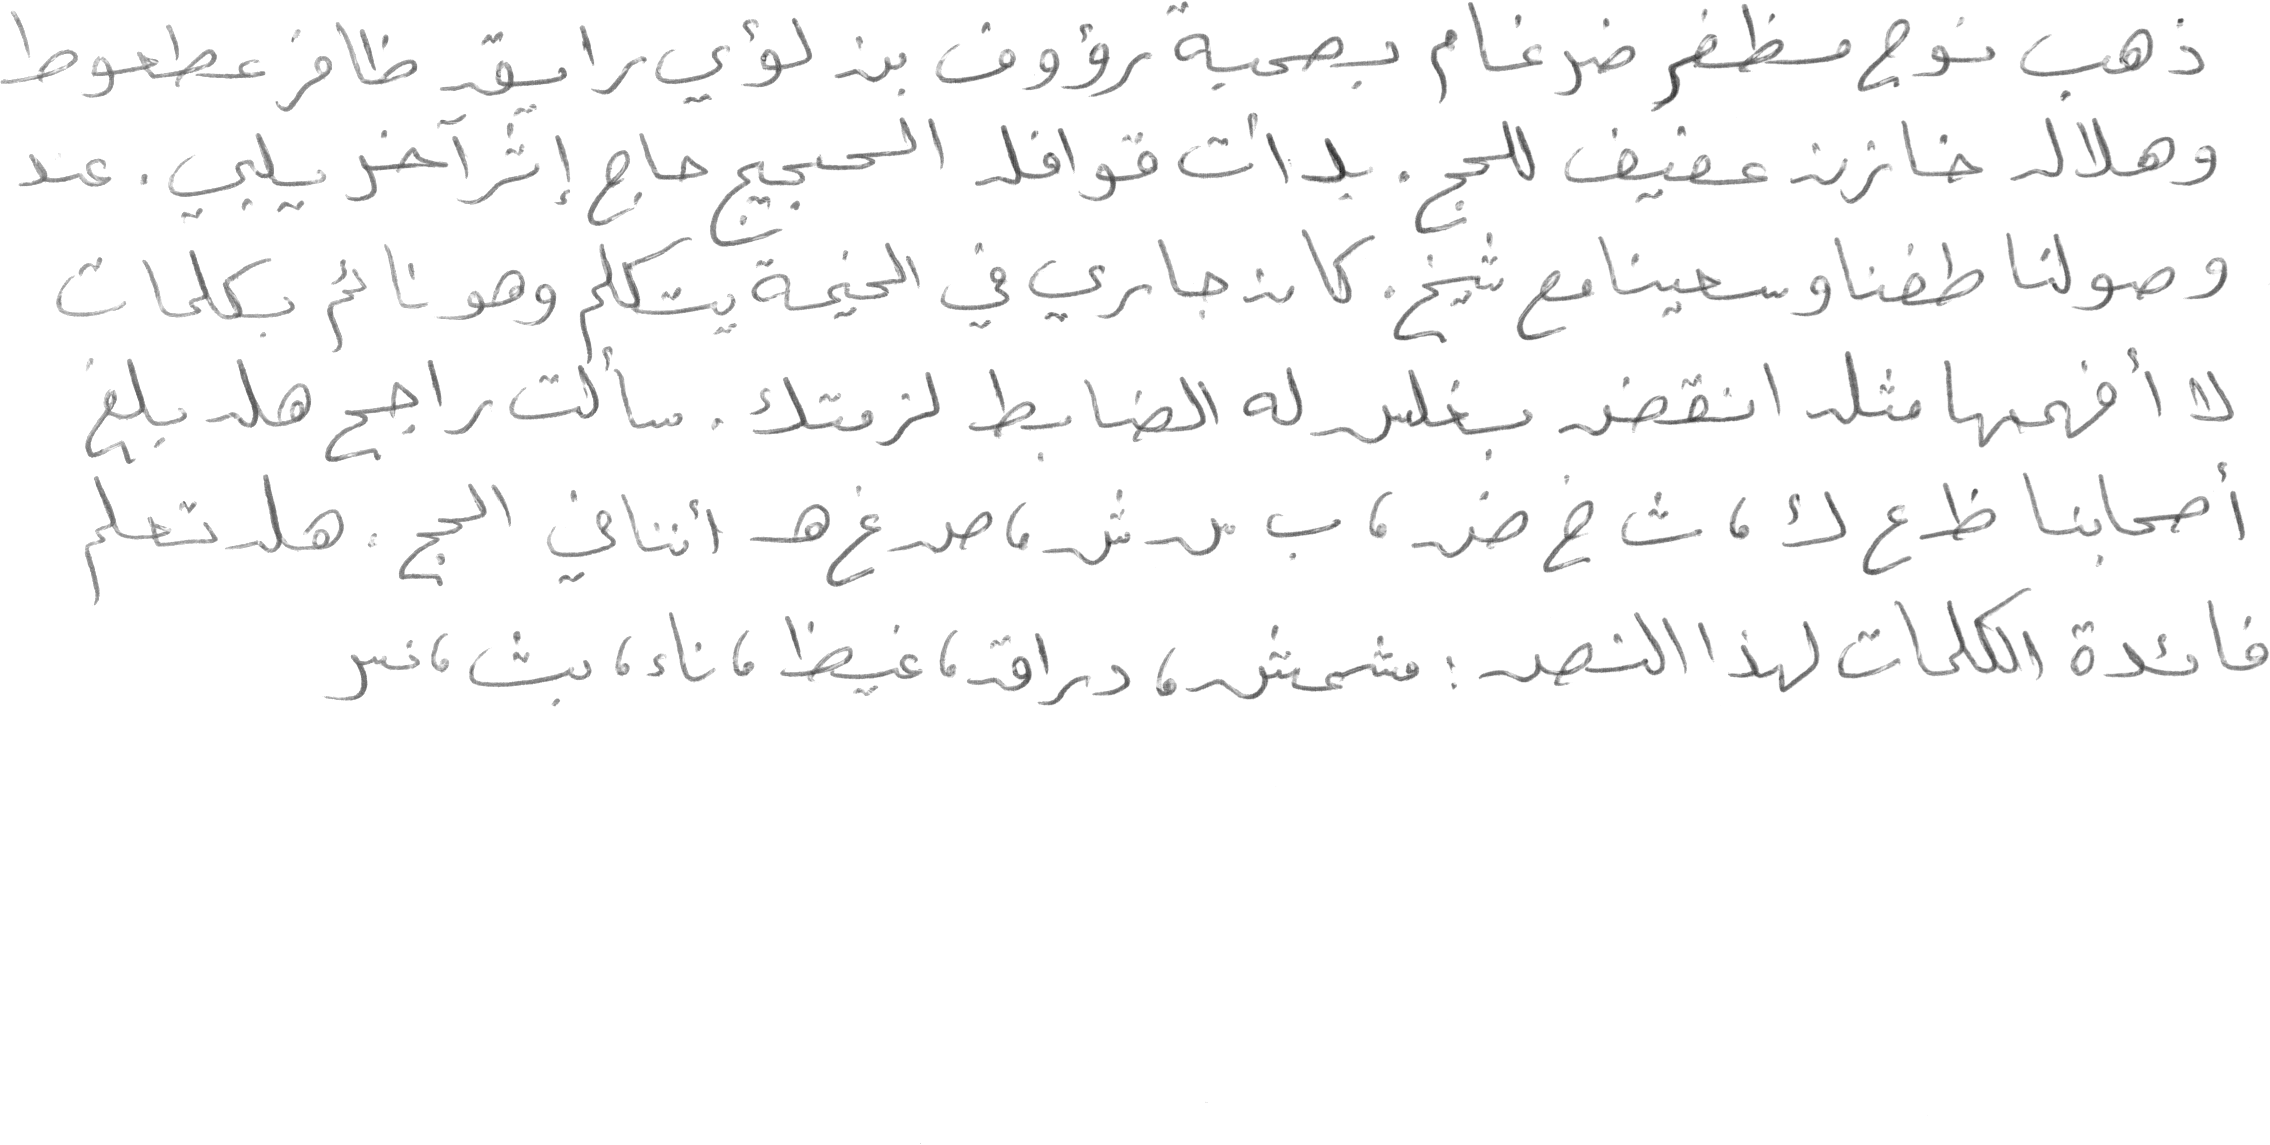 ذهب نوح مظفر ضرغام بصحبة رؤوف بن لؤي رايق ظافر عطعوط
وهلال خازن عفيف للحج. بدأت قوافل الحجيج حاج إثر آخر يلبي. عند
وصولنا طفنا وسعينا مع شيخ. كان جاري في الخيمة يتكلم وهو نائم بكلمات
لا أفهمها مثل انقض بغلس له الضابط لزمتك. سألت راجح هل بلغ
أصحابنا ظ ع ك، ث خ ض، ب س ش، ص غ هـ أننا في الحج. هل تعلم
فائدة الكلمات لهذا النص: مشمش، دراق، غيظ، ناء، بث، نس